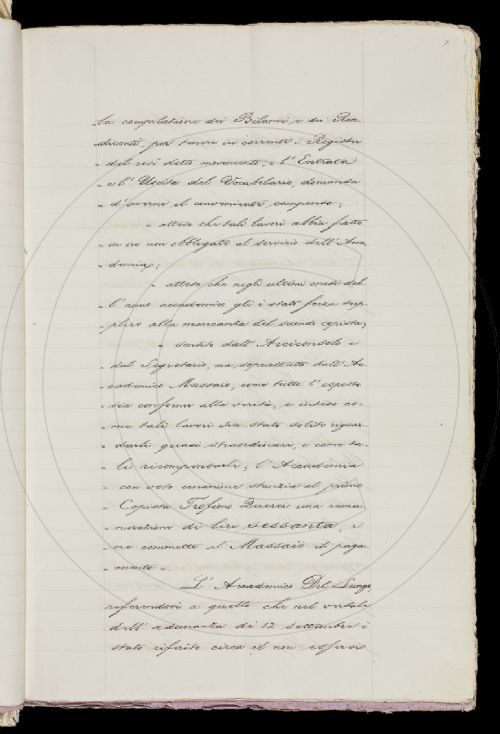 la compilazione dei Bilanci e dei Ren-
diconti, per tenere in corrente i Registri
„ del così detto movimento, e l'Entrata
„ e l'Uscita del Vocabolario, domanda
„ d'averne il conveniente compenso;
„ atteso che tali lavori abbia fatto
„ in ore non obbligate al servizio dell'Acca-
„ demia;
„ atteso che negli ultimi mesi del-
„ l'anno accademico gli è stato forza sup-
„ plire alla mancanza del secondo copista;
„ sentito dall'Arciconsolo e
„ dal Segretario, ma soprattutto dall'Ac-
„ cademico Massaio, come tutto l'esposto
„ sia conforme alla verità, e inteso co-
„ me tali lavori sia stato solito riguar-
„ darli quasi straordinari, e come ta-
„ li ricompensarli; l'Accademia
„ con voto unanime stanzia al primo
„ Copista Trofimo Querci una remu-
„ nerazione di lire sessanta, e
„ ne commette al Massaio il paga-
„ mento.
L'Accademico Del Lungo,
referendosi a quello che nel verbale
dell'adunanza di 12 settembre è
stato riferito circa il non essersi